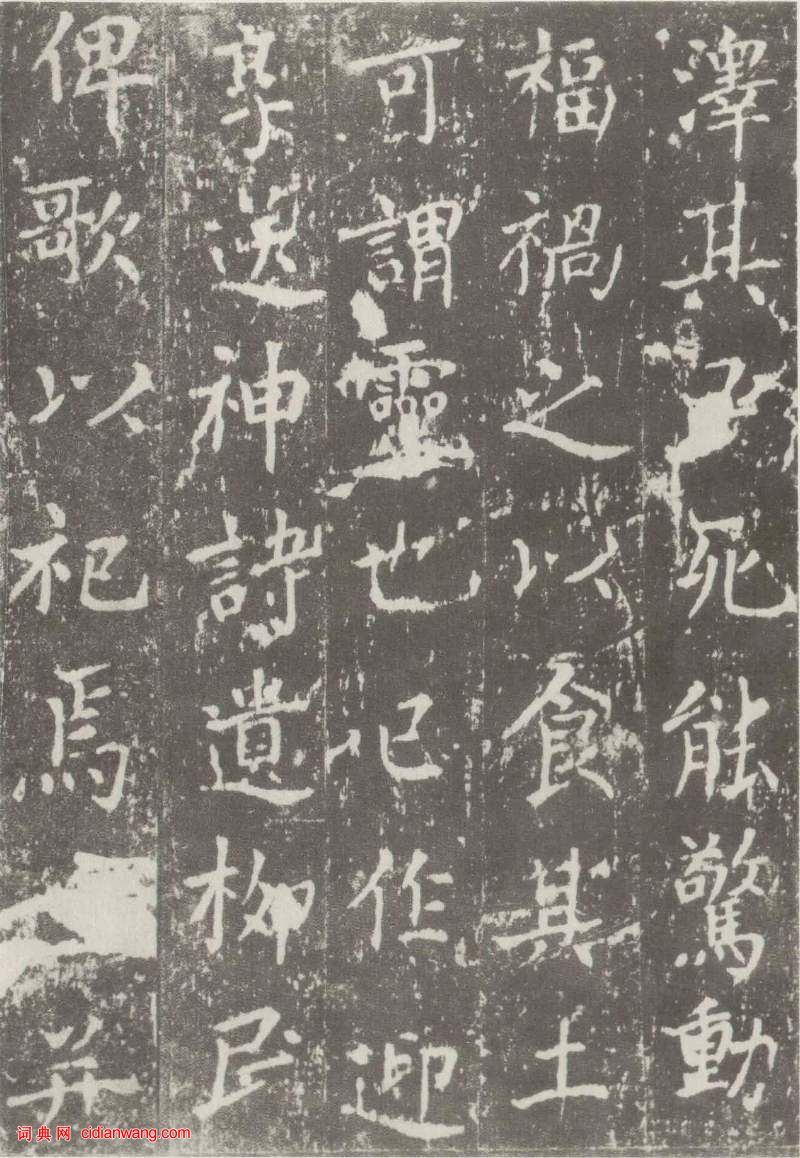 澤其死能驚動
福禍之以食其土
可謂靈也已作迎
享送神詩遺柳民
俾歌以祀焉并
词典网 cidianwang.com